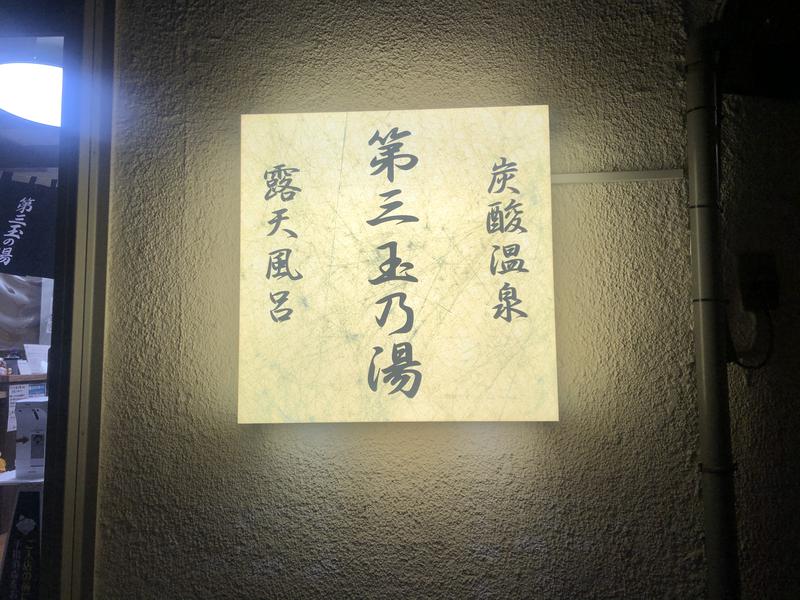 炭酸温泉
第三玉乃湯
露天風呂
第三玉の湯